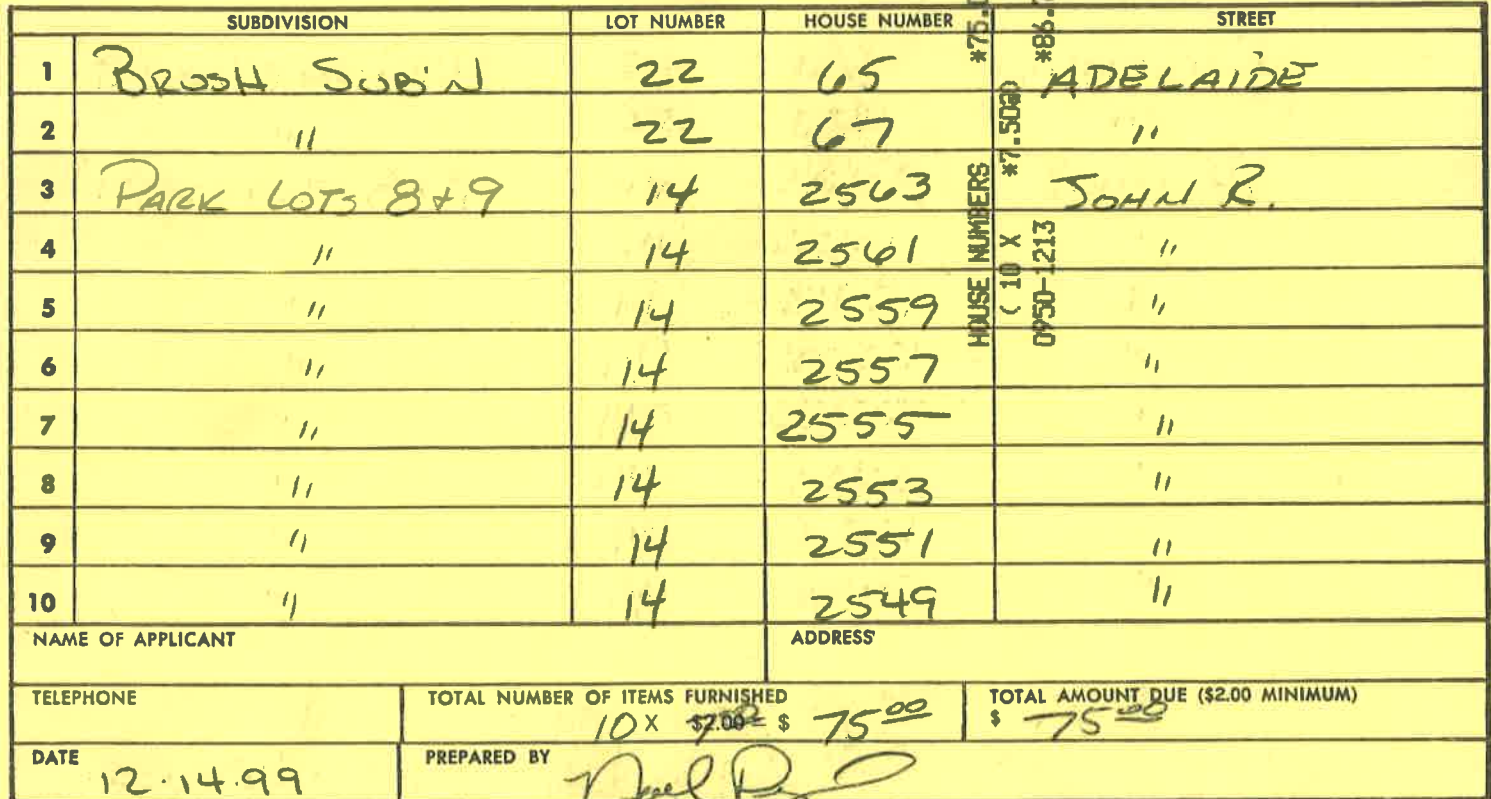 SUBDIVISION LOT NUMBER HOUSE NUMBER STREET
1 BRUSH SUB'N 22 65 ADELAIDE
2 " 22 67 "
3 PARK LOTS 8+9 14 2563 JOHN R.
4 " 14 2561 "
5 " 14 2559 "
6 " 14 2557 "
7 " 14 2555 "
8 " 14 2553 "
9 " 14 2551 "
10 " 14 2549 "
HOUSE NUMBERS *75.
( 10 X *7.50@)
0950-1213 *86.
NAME OF APPLICANT ADDRESS
TELEPHONE TOTAL NUMBER OF ITEMS FURNISHED TOTAL AMOUNT DUE ($2.00 MINIMUM)
10 X $2.00 = $ 75 00 $ 75 00
DATE PREPARED BY
12.14.99